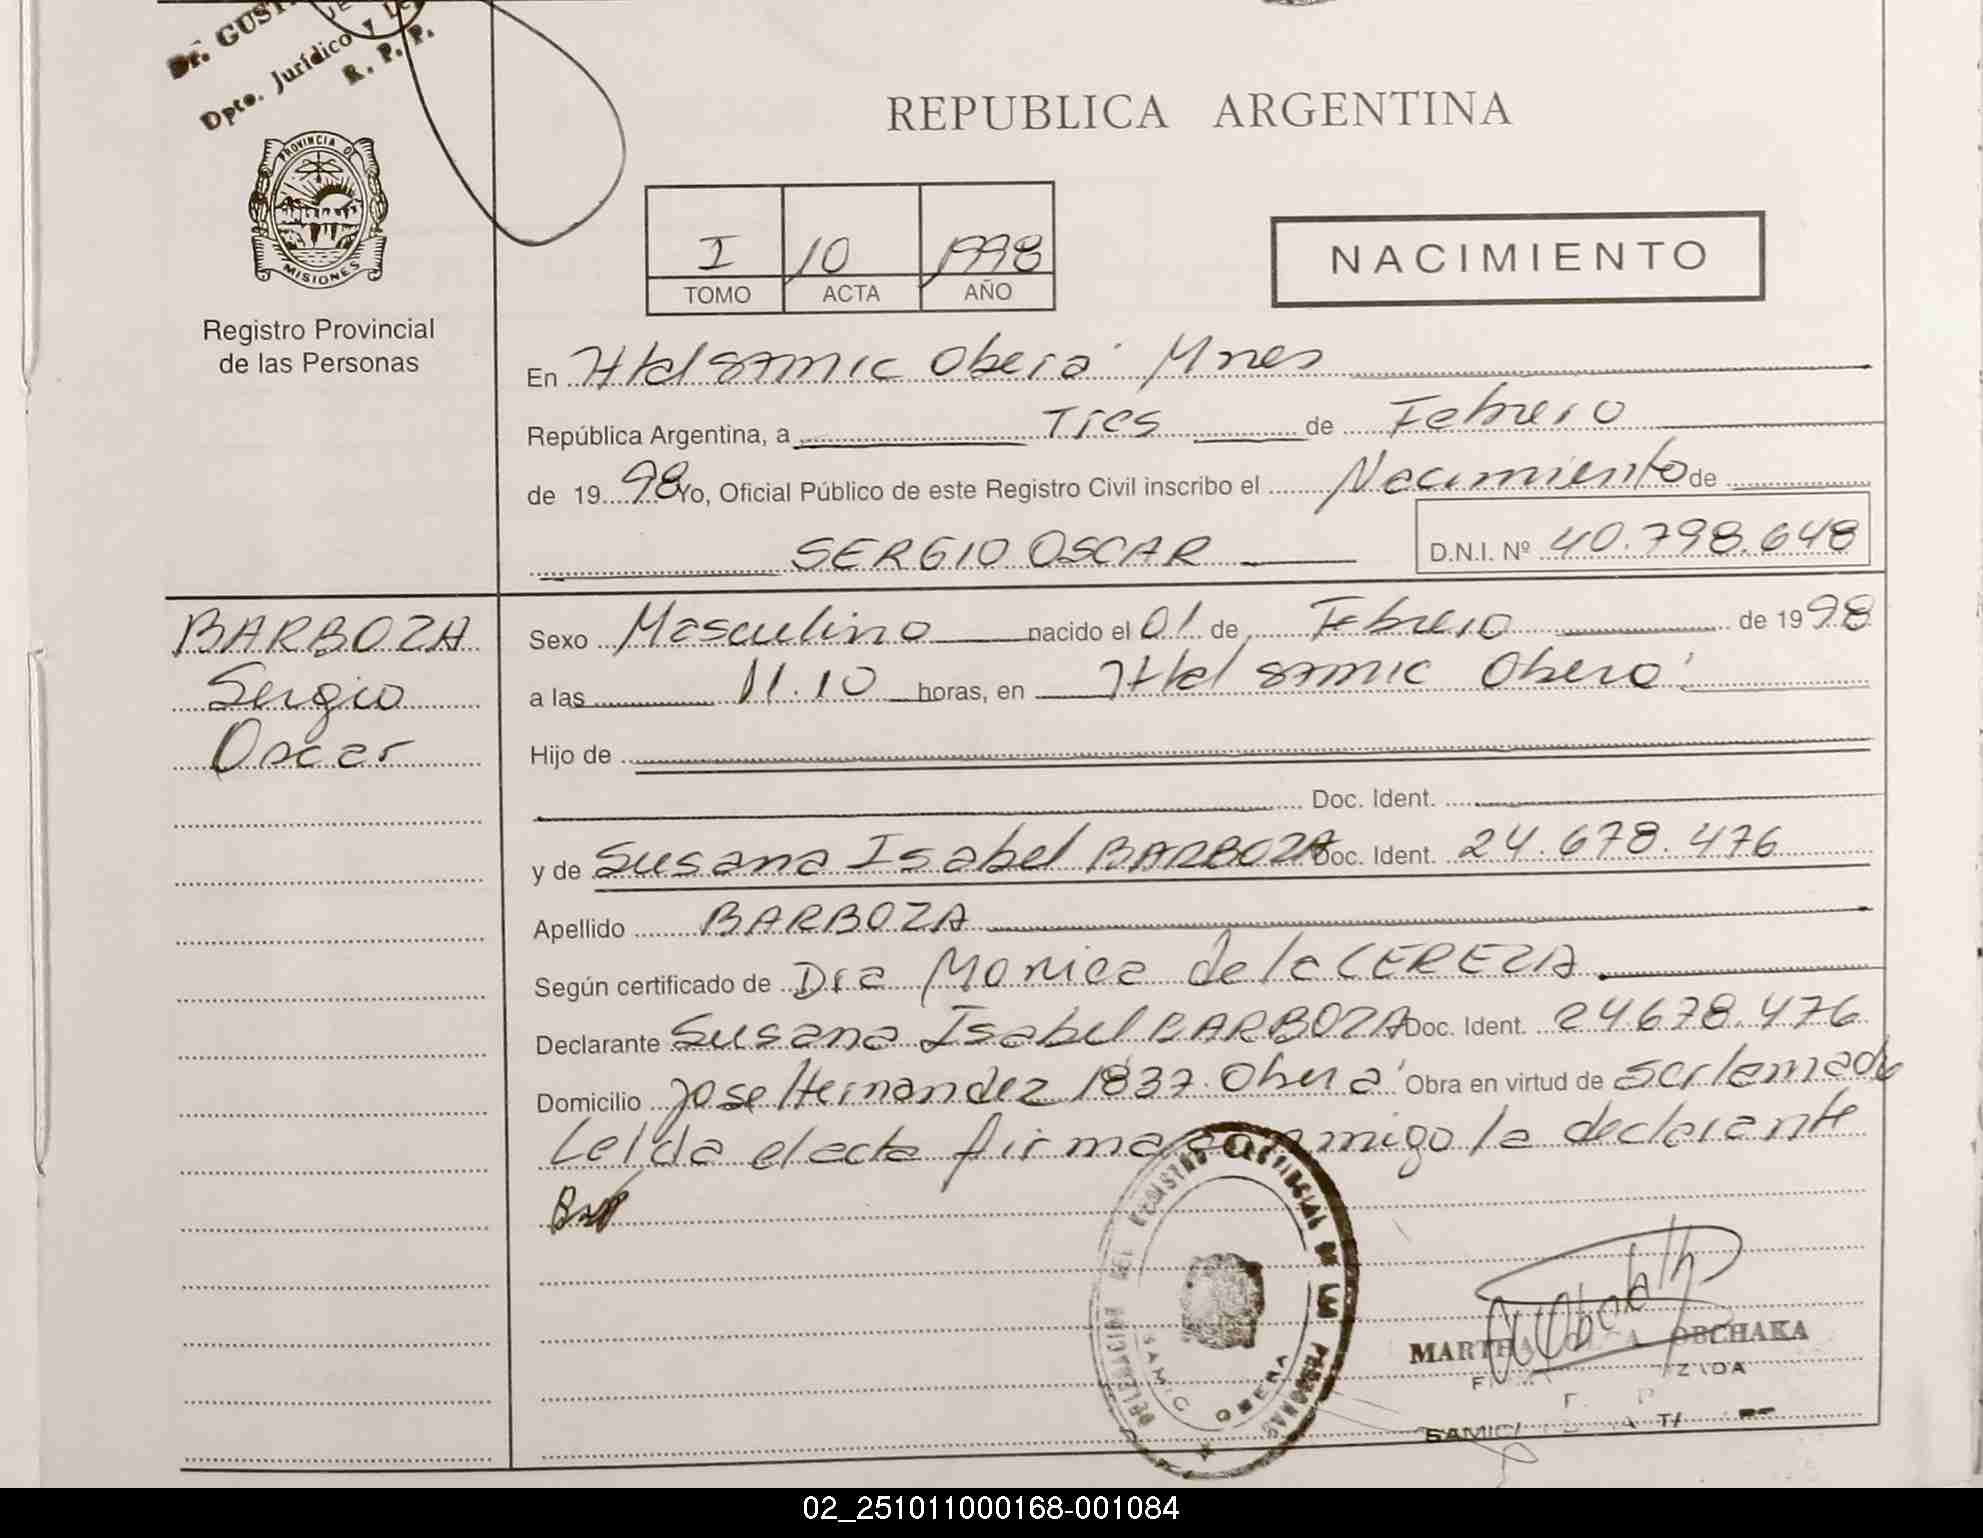 Dr. GUST
Dpto. Jurídico y Le
R. P. P.
PROVINCIA DE
MISIONES
Registro Provincial
de las Personas
REPUBLICA ARGENTINA
I 10 1998
TOMO ACTA AÑO
NACIMIENTO
En Htal SAMIC Oberá Mnes
República Argentina, a Tres de Febrero
de 1998 Yo, Oficial Público de este Registro Civil inscribo el Nacimiento de
SERGIO OSCAR D.N.I. Nº 40.798.648
BARBOZA
Sergio
Oscar
Sexo Masculino nacido el 01 de Febrero de 1998
a las 11.10 horas, en Htal SAMIC Oberá
Hijo de
Doc. Ident.
y de Susana Isabel BARBOZA Doc. Ident. 24.678.476
Apellido BARBOZA
Según certificado de Dra Monica de la CEREZA
Declarante Susana Isabel BARBOZA Doc. Ident. 24678.476
Domicilio Jose Hernandez 1837 Oberá Obra en virtud de ser llamado
Leída el acta firma conmigo la declarante
DELEGACION DEL REGISTRO PROVINCIAL DE LAS PERSONAS
SAMIC OBERA
MARTHA OBCHAKA
SAMIC
02_251011000168-001084